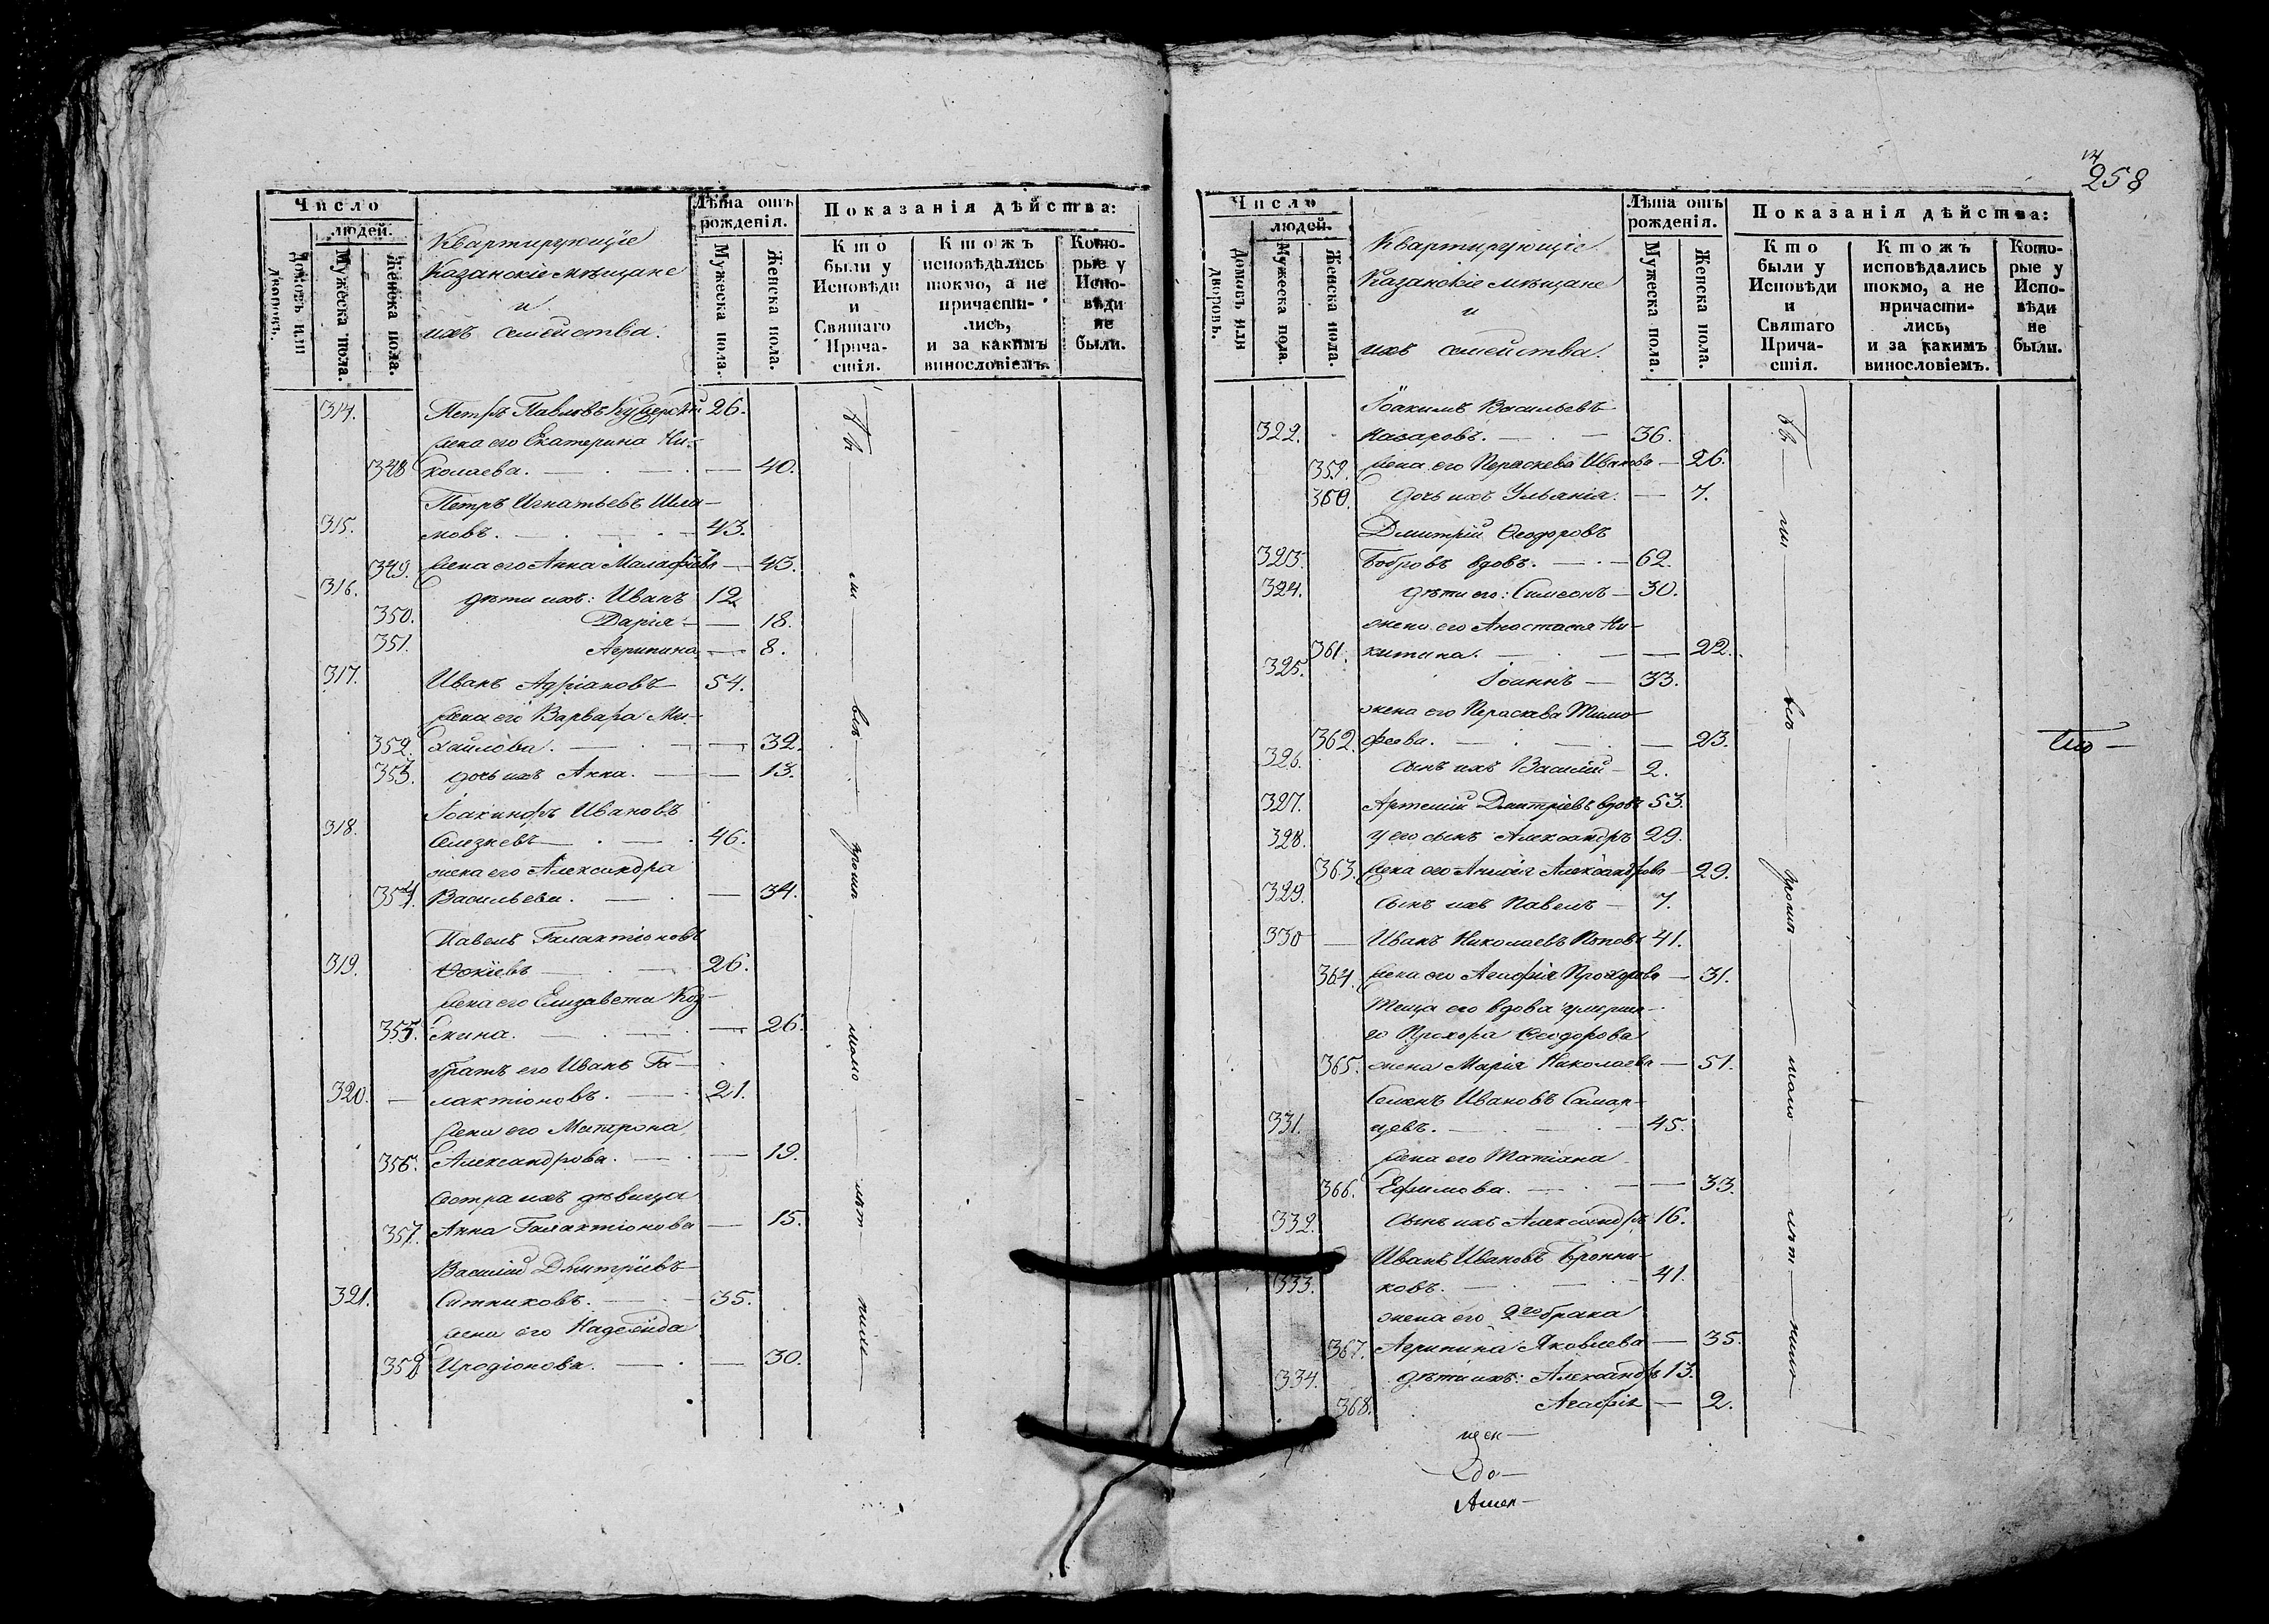 Число
людей.
Домовъ или дворовъ.
Мужеска пола.
Женска пола.
Квартирующіе
Казанскіе мѣщане
и
ихъ семейства:
Лѣта отъ
рожденія.
Мужеска пола.
Женска пола.
Показанія дѣйства:
Кто
были у
Исповѣди
и
Святаго
Прича-
стія.
Ктожъ
исповѣдались
токмо, а не
причасти-
лись,
и за какимъ
винословіемъ.
Кото-
рые у
Испо-
вѣди
не
были.
314. Петръ Павловъ 26.
жена его Екатерина Ни-
348 колаева. — 40.
Петръ Игнатьевъ Шла-
315. мовъ. — 43.
349. жена его Анна — 43.
316. дѣти ихъ: Иванъ 12
350. Дарія — 18.
351. Агрипина — 8.
317. Иванъ Адріановъ 54.
жена его Варвара Ми-
352. хайлова. — 32.
353. дочь ихъ Анна. — 13.
Іоакинфъ Ивановъ
318. Селезневъ — 46.
жена его Александра
354. Васильева. — 34.
Павелъ Галактіоновъ
319. 26.
жена его Елизавета Коз-
355. мина. — 26.
братъ его Иванъ Га-
320. — лактіоновъ. — 21.
жена его Матрона
356. Александрова. — 19.
сестра ихъ дѣвица
357. Анна Галактіонова — 15.
Василій Дмитріевъ
321. Ситниковъ. — 35.
жена его Надежда
358 Иродіонова. — 30.
258
Число
людей.
Домовъ или дворовъ.
Мужеска пола.
Женска пола.
Квартирующіе
Казанскіе мѣщане
и
ихъ семейства.
Лѣта отъ
рожденія.
Мужеска пола.
Женска пола.
Показанія дѣйства:
Кто
были у
Исповѣди
и
Святаго
Прича-
стія.
Ктожъ
исповѣдались
токмо, а не
причасти-
лись,
и за какимъ
винословіемъ.
Кото-
рые у
Испо-
вѣди
не
были.
Іоакимъ Васильевъ
322. Назаровъ. — 36.
359. жена его Параскева Иванова — 26.
360. дочь ихъ Ульянія. — 7.
Дмитрій Ѳеодоровъ
323. Бобровъ вдовъ. — 62.
324. дѣти его: Симеонъ — 30.
жена его Анастасія Ни-
361. китина. — 22.
325. Іоаннъ — 33.
жена его Параскева Тимо-
362. феева. — 23.
326. сынъ ихъ Василій — 2.
327. Артемій Дмитріевъ вдовъ 53.
328. у его сынъ Александръ 29.
363. жена его Анисія Александрова — 29.
329. сынъ ихъ Павелъ — 7.
330 — Иванъ Николаевъ Поповъ 41.
364. жена его Агафія Прохорова — 31.
Теща его вдова умерша-
го Прохора Ѳеодорова
365. жена Марія Николаева — 51.
Семенъ Ивановъ Самар-
331. цевъ. — 45.
жена его Татіана
366. Ефимова. — 33.
332. сынъ ихъ Александръ 16.
Иванъ Ивановъ Бронни-
333. ковъ. — 41.
жена его 2го брака
367. Агрипина Яковлева — 35.
334. дѣти ихъ: Александръ 13.
368. Агафія — 2.